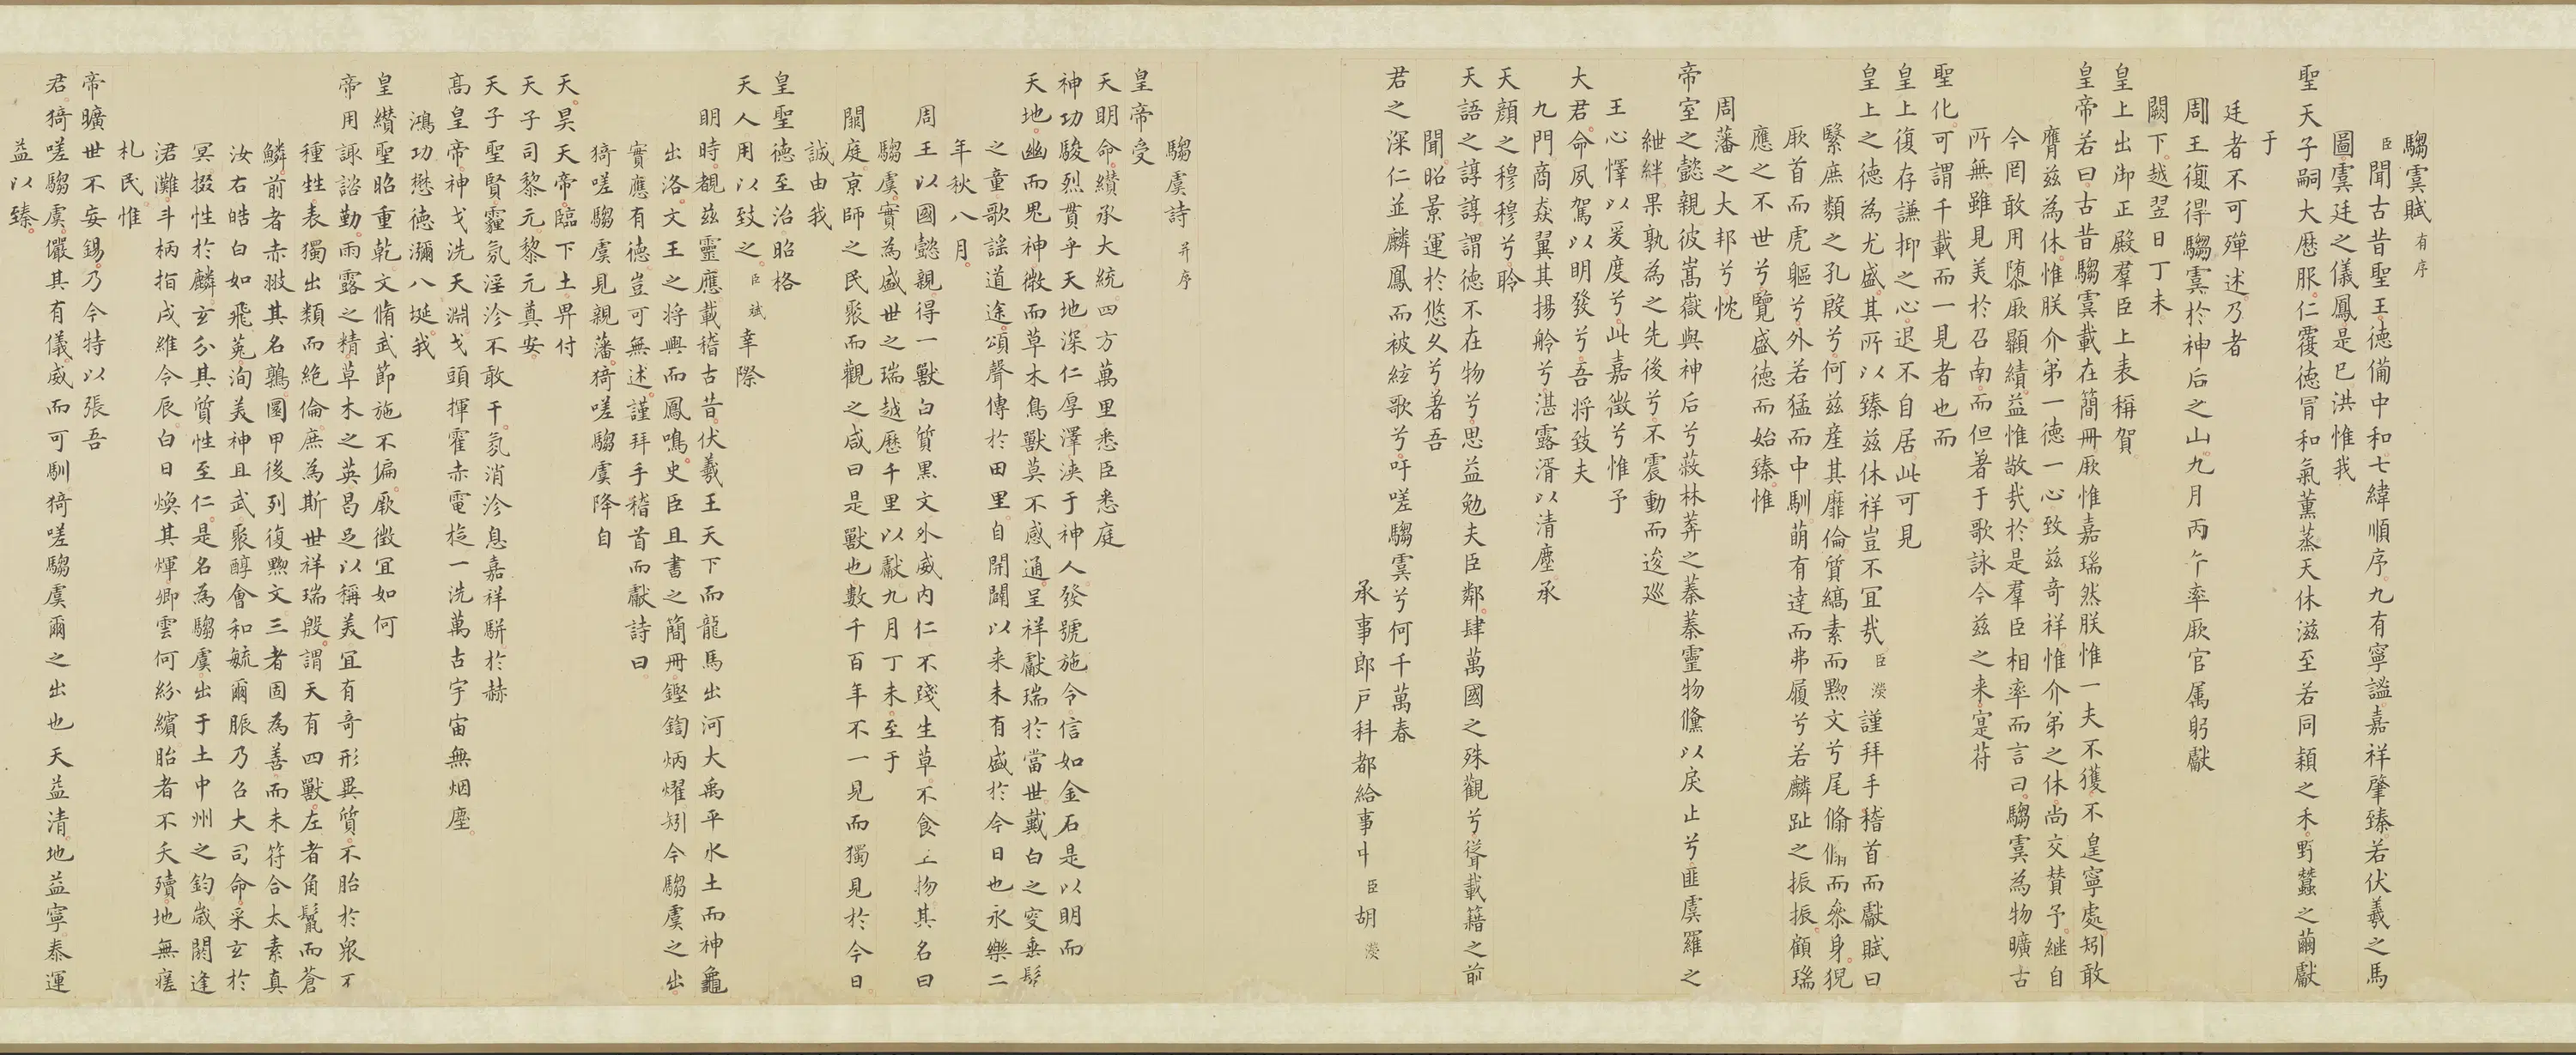 騶虞賦有序
臣聞古昔聖王德備中和七緯順序九有寧謐嘉祥肇臻若伏羲之馬
圖虞廷之儀鳳是已洪惟我
聖天子嗣大歷服仁覆德冒和氣薰蒸天休滋至若同穎之禾野蠶之繭獻
于
廷者不可殫述乃者
周王復得騶虞於神后之山九月丙午率厥官属躬獻
闕下越翌日丁未
皇上出御正殿羣臣上表稱賀
皇帝若曰古昔騶虞載在簡冊厥惟嘉瑞然朕惟一夫不獲不遑寧處矧敢
膺兹為休惟朕介弟一德一心致兹奇祥惟介弟之休尚交賛予継自
今罔敢用隳厥顯績益惟敬㢤於是羣臣相率而言曰騶虞為物曠古
所無雖見美於召南而但著于歌詠今兹之来寔苻
聖化可謂千載而一見者也而
皇上復存謙抑之心退不自居此可見
皇上之德為尤盛其所以臻兹休祥豈不冝㢤臣濙謹拜手稽首而獻賦曰
繄庶類之孔殷兮何兹産其靡倫質縞素而黝文兮尾倏倏而叅身猊
厥首而虎軀兮外若猛而中馴萌有達而弗履兮若麟趾之振振顧瑞
應之不世兮覽盛德而始臻惟
周藩之大邦兮忱
帝室之懿親彼嵩嶽與神后兮蔽林莽之蓁蓁靈物儵以戾止兮匪虞羅之
紲絆果孰為之先後兮不震動而逡廵
王心懌以爰度兮此嘉徴兮惟予
大君命夙駕以明發兮吾将致夫
九門商焱翼其揚舲兮湛露湑以清塵承
天顔之穆穆兮聆
天語之諄諄謂德不在物兮思益勉夫臣鄰肆萬國之殊觀兮聳載籍之前
聞昭景運於悠夂兮著吾
君之深仁並麟鳳而被絃歌兮吁嗟騶虞兮何千萬春
承事郎戸科都給事中臣胡濙
騶虞詩并序
皇帝受
天明命纘承大統四方萬里悉臣悉庭
神功駿烈貫乎天地深仁厚澤浹于神人發號施令信如金石是以明而
天地幽而鬼神微而草木鳥獸莫不感通呈祥獻瑞於當世戴白之叟垂髫
之童歌謡道途頌聲傳於田里自開闢以来未有盛於今日也永樂二
年秋八月
周王以國懿親得一獸白質黒文外威内仁不踐生草不食生物其名曰
騶虞實為盛世之瑞越歷千里以獻九月丁未至于
闕庭京師之民聚而觀之咸曰是獸也數千百年不一見而獨見於今日
誠由我
皇聖德至治昭格
天人用以致之臣斌幸際
明時覩兹靈應載稽古昔伏羲王天下而龍馬出河大禹平水土而神龜
出洛文王之将興而鳳鳴史臣且書之簡冊鏗鍧炳燿矧今騶虞之出
實應有德豈可無述謹拜手稽首而獻詩曰
猗嗟騶虞見親藩猗嗟騶虞降自
天昊天帝臨下土畀付
天子司黎元黎元奠安
天子聖賢霾氛淫沴不敢干氛消沴息嘉祥駢於赫
髙皇帝神戈洗天淵戈頭揮霍赤電旋一洗萬古宇宙無烟塵
鴻功懋德瀰八埏我
皇纘聖昭重乾文脩武節施不偏厥徴冝如何
帝用諏諮勤雨露之精草木之英昌足以稱美冝有奇形異質不胎於衆不
種牲表獨出類而絶倫庶為斯世祥瑞殷謂天有四獸左者角鬣而蒼
鱗前者赤翅其名鶉圜甲後列復黝文三者固為善而未符合太素真
汝右皓白如飛菟洵美神且武聚醇會和毓爾脤乃召大司命采玄於
冥掇性於麟玄分其質性至仁是名為騶虞出于土中州之鈞歳閼逢
涒灘斗柄指戌維今辰白日煥其煇卿雲何紛繽胎者不夭殰地無瘥
札民惟
帝曠世不妄錫乃今特以張吾
君猗嗟騶虞儼其有儀威而可馴猗嗟騶虞爾之出也天益清地益寧泰運
益以臻